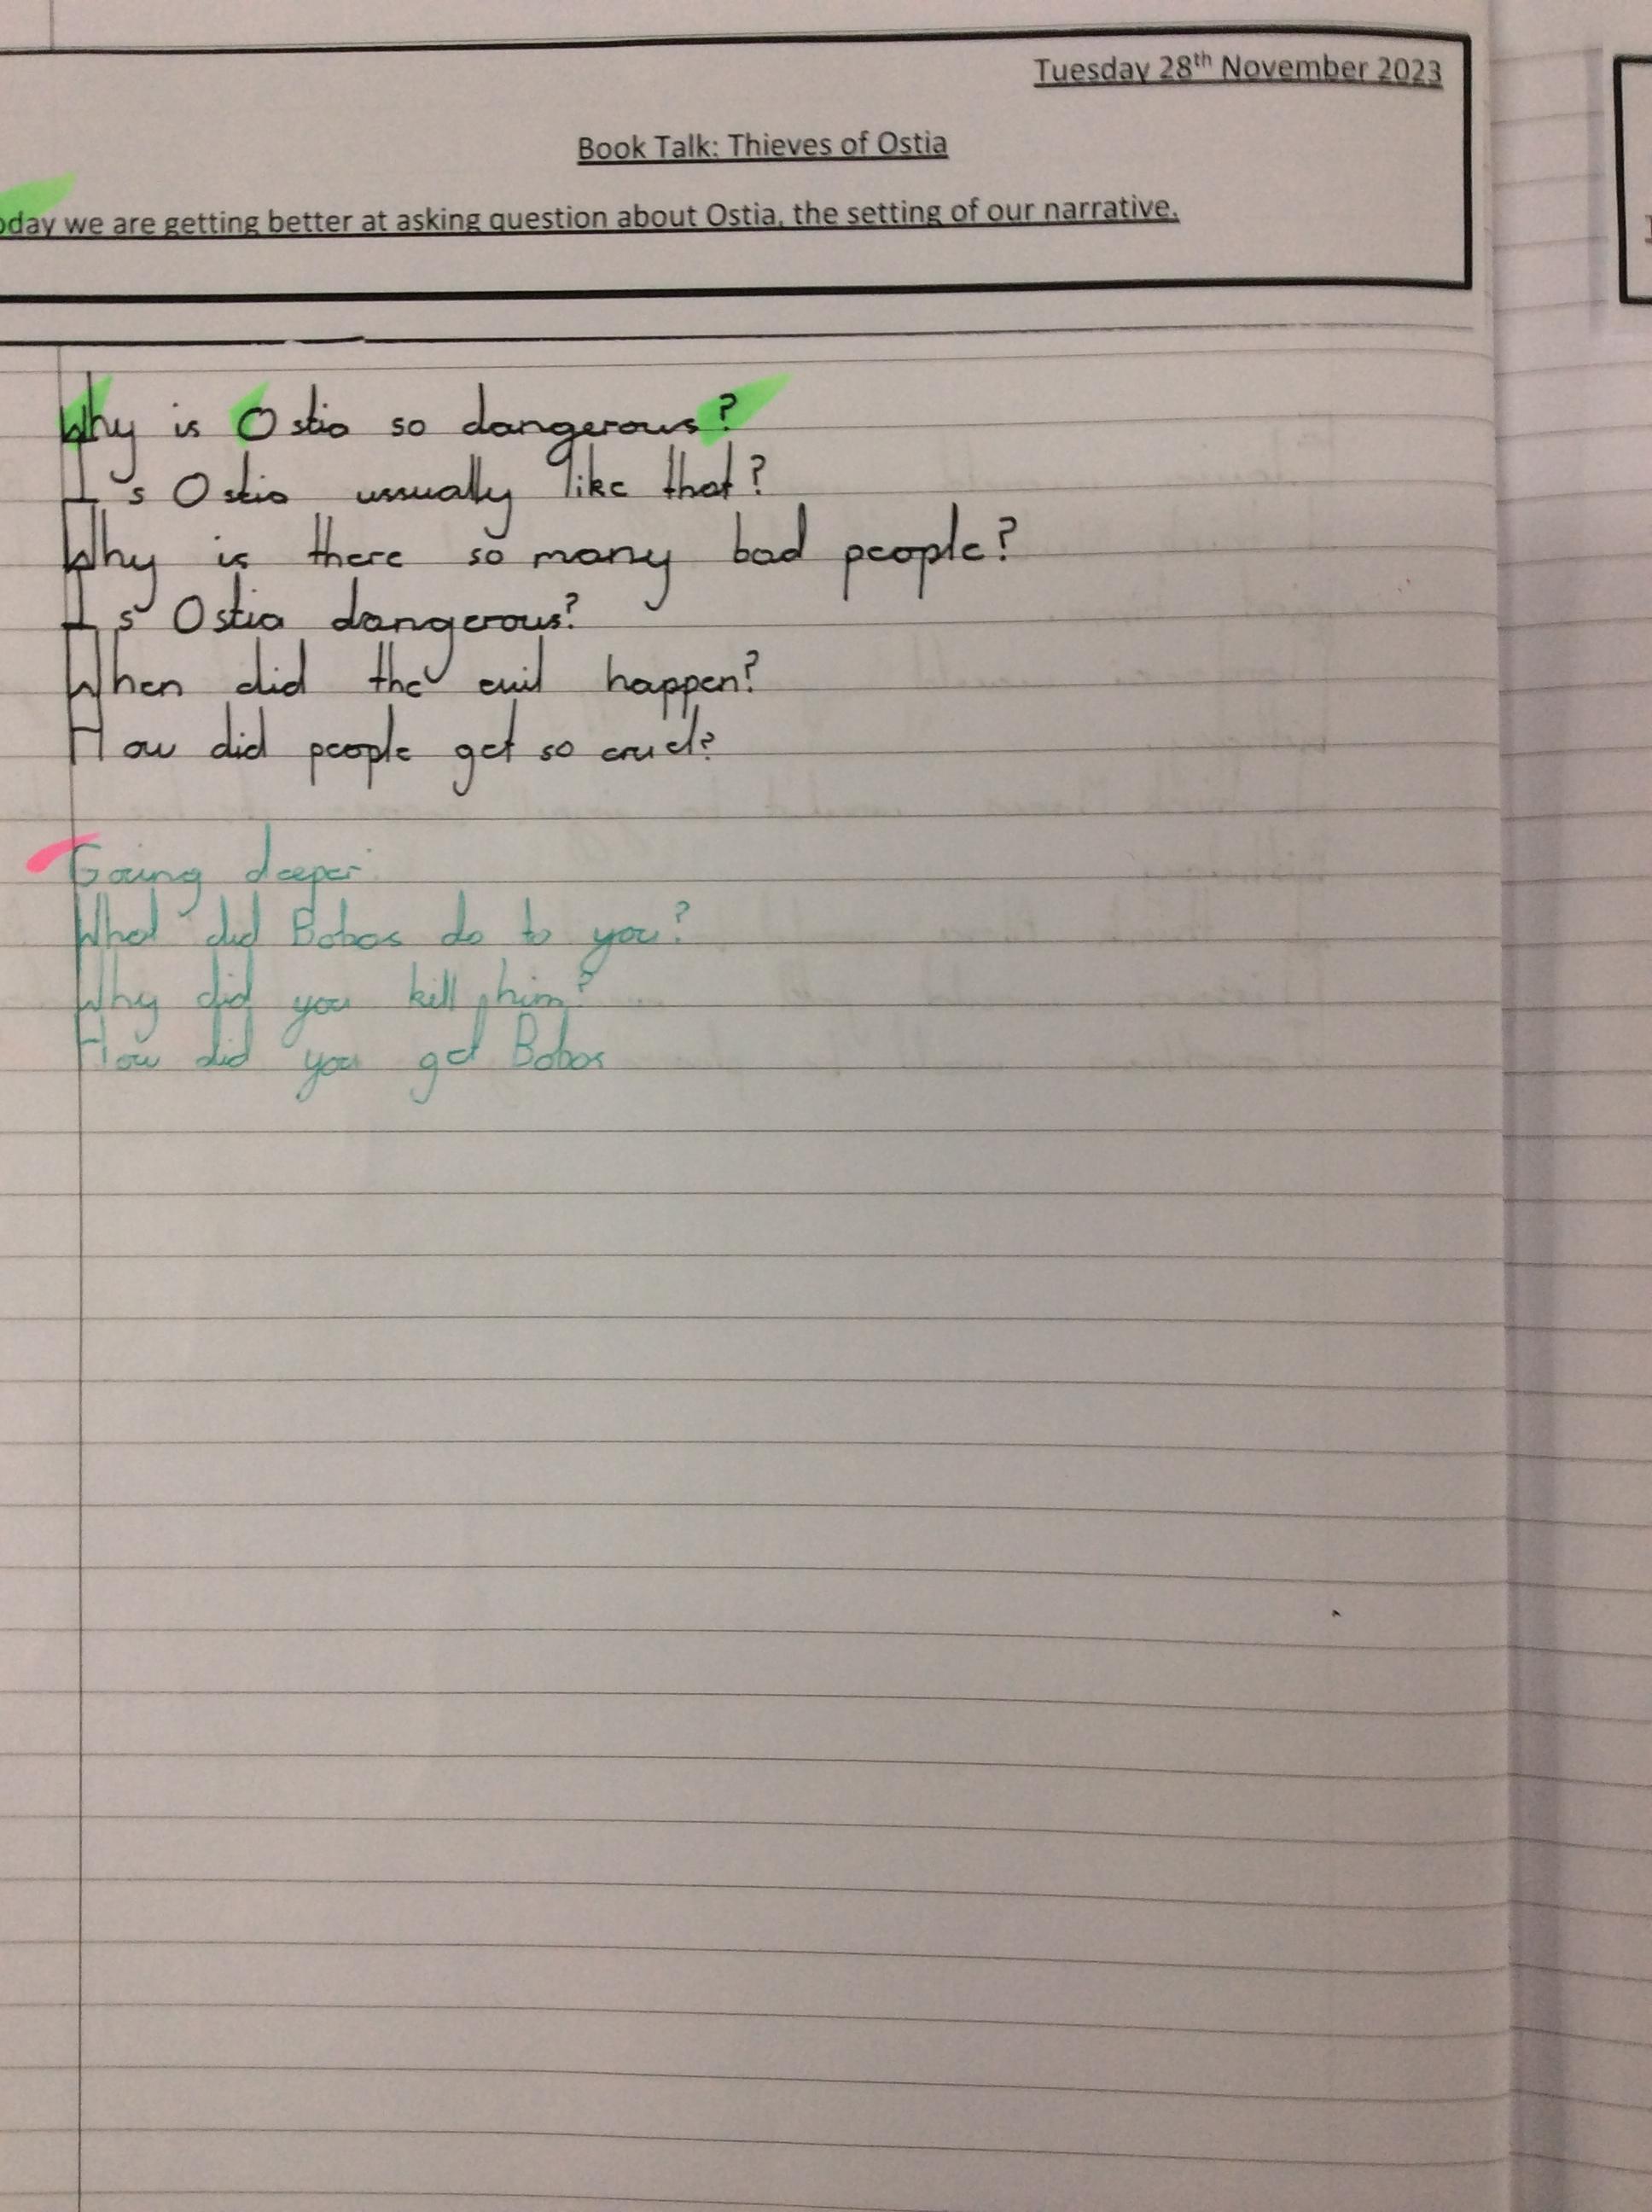 Tuesday 28th November 2023
Book Talk: Thieves of Ostia
oday we are getting better at asking question about Ostia, the setting of our narrative.
Why is Ostia so dangerous?
Is Ostia usually like that?
Why is there so many bad people?
Is Ostia dangerous?
When did the evil happen?
How did people get so cruel?
Going deeper
What did Bobas do to you?
Why did you kill him?
How did you get Bobas